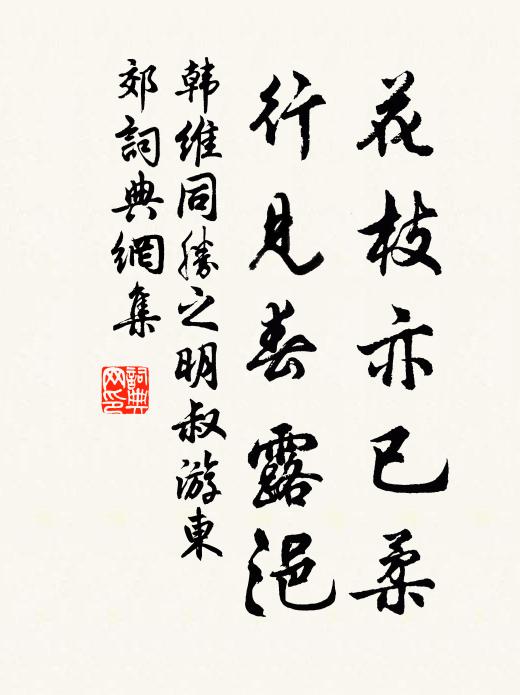 花枝亦已柔
行見春露浥
韩維同勝之明叔游東
郊詞典網集
詞典网印